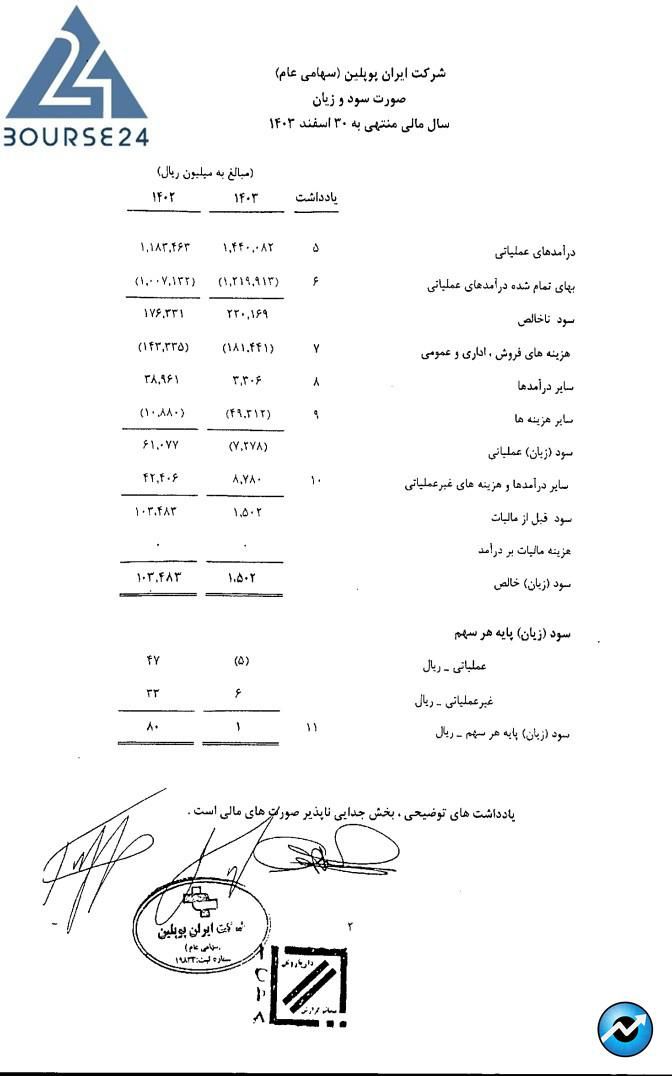 BOURSE24
شرکت ایران پوپلین (سهامی عام)
صورت سود و زیان
سال مالی منتهی به ۳۰ اسفند ۱۴۰۳
(مبالغ به میلیون ریال)
یادداشت ۱۴۰۳ ۱۴۰۲
درآمدهای عملیاتی ۵ ۱,۴۴۰,۰۸۲ ۱,۱۸۳,۴۶۳
بهای تمام شده درآمدهای عملیاتی ۶ (۱,۲۱۹,۹۱۳) (۱,۰۰۷,۱۳۲)
سود ناخالص ۲۲۰,۱۶۹ ۱۷۶,۳۳۱
هزینه های فروش ، اداری و عمومی ۷ (۱۸۱,۴۴۱) (۱۴۳,۳۳۵)
سایر درآمدها ۸ ۳,۳۰۶ ۳۸,۹۶۱
سایر هزینه ها ۹ (۴۹,۳۱۲) (۱۰,۸۸۰)
سود (زیان) عملیاتی (۷,۲۷۸) ۶۱,۰۷۷
سایر درآمدها و هزینه های غیرعملیاتی ۱۰ ۸,۷۸۰ ۴۲,۴۰۶
سود قبل از مالیات ۱,۵۰۲ ۱۰۳,۴۸۳
هزینه مالیات بر درآمد ۰ ۰
سود (زیان) خالص ۱,۵۰۲ ۱۰۳,۴۸۳
سود (زیان) پایه هر سهم
عملیاتی _ ریال (۵) ۴۷
غیرعملیاتی _ ریال ۶ ۳۳
سود (زیان) پایه هر سهم _ ریال ۱۱ ۱ ۸۰
یادداشت های توضیحی ، بخش جدایی ناپذیر صورت های مالی است .
۲
ایران پوپلین
(سهامی عام)
شماره ثبت: ۱۹۸۳۳